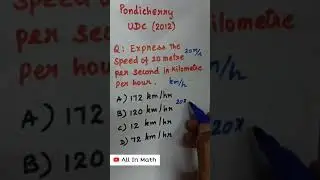 Pondicherry
UDC (2012)
Q: Express the
speed of 20 metre 20 m/s
per second in kilometre
per hour. km/h
A) 172 km/hr
20x
B) 120 km/hr
C) 12 km/hr
D) 72 km/hr
All In Math